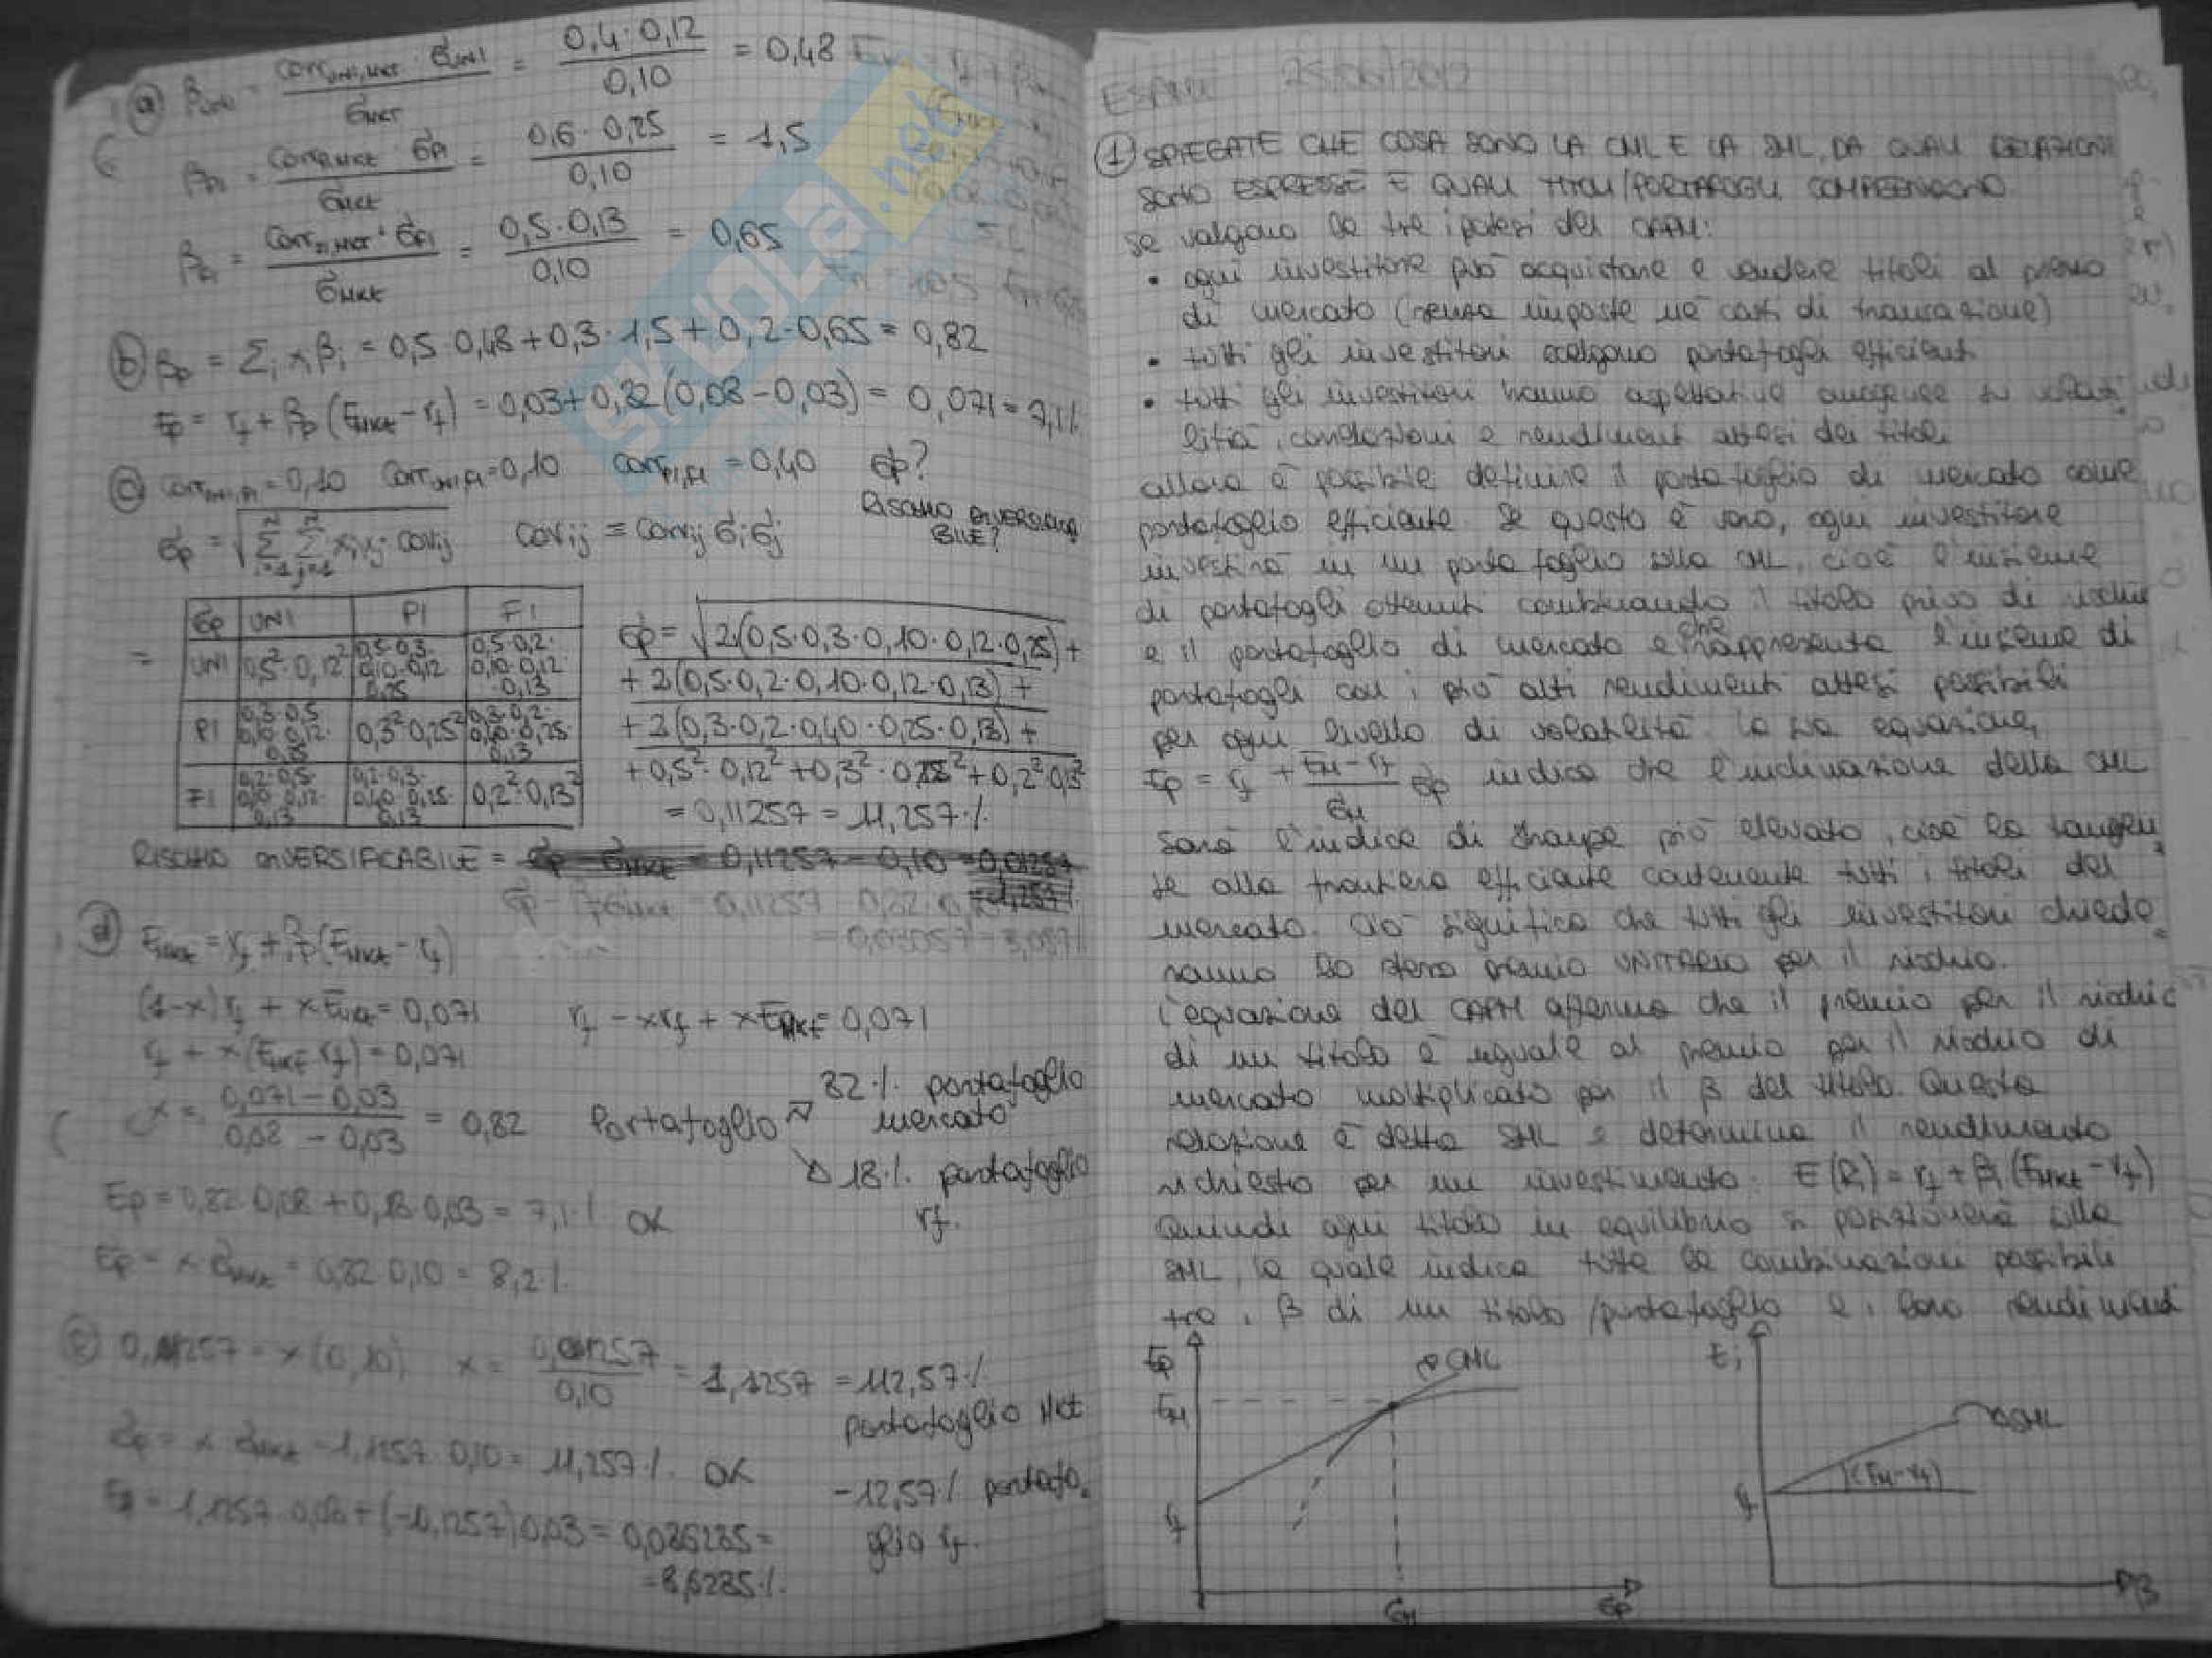 a) β_UNI = corr_UNI,MKT · σ_UNI / σ_MKT = 0,4·0,12 / 0,10 = 0,48
β_PI = corr_PI,MKT · σ_PI / σ_MKT = 0,6·0,25 / 0,10 = 1,5
β_FI = corr_FI,MKT · σ_FI / σ_MKT = 0,5·0,13 / 0,10 = 0,65
b) β_p = Σ_i x_i β_i = 0,5·0,48+0,3·1,5+0,2·0,65 = 0,82
E_p = r_f + β_p (E_MKT − r_f) = 0,03+0,82(0,08−0,03) = 0,071 = 7,1%
c) corr_UNI,PI = 0,10 corr_UNI,FI = 0,10 corr_PI,FI = 0,40 σ_p?
RISCHIO DIVERSIFICA
BILE?
σ_p = √(Σ_{i=1}^n Σ_{j=1}^n x_i x_j cov_ij) cov_ij = corr_ij σ_i σ_j
σ_p UNI PI FI
UNI 0,5²·0,12² 0,5·0,3·0,10·0,12·0,25 0,5·0,2·0,10·0,12·0,13
PI 0,3·0,5·0,10·0,12·0,25 0,3²·0,25² 0,3·0,2·0,40·0,25·0,13
FI 0,2·0,5·0,10·0,12·0,13 0,2·0,3·0,40·0,25·0,13 0,2²·0,13²
σ_p = √2(0,5·0,3·0,10·0,12·0,25)+
+2(0,5·0,2·0,10·0,12·0,13)+
+2(0,3·0,2·0,40·0,25·0,13)+
+0,5²·0,12²+0,3²·0,25²+0,2²·0,13²
= 0,11257 = 11,257%
RISCHIO DIVERSIFICABILE = σ_p − σ_MKT = 0,11257 − 0,10 = 0,01257
= 1,257%
σ_p − β_p σ_MKT = 0,11257 − 0,82·0,10
= 0,03057 = 3,057%
d) E_MKT = r_f + β_p (E_MKT − r_f)
(1−x) r_f + x E_MKT = 0,071 r_f − x r_f + x E_MKT = 0,071
r_f + x (E_MKT − r_f) = 0,071
x = 0,071 − 0,03 / 0,08 − 0,03 = 0,82 Portafoglio
82% portafoglio
mercato
18% portafoglio
r_f.
E_p = 0,82·0,08 + 0,18·0,03 = 7,1% OK
σ_p = x σ_MKT = 0,82·0,10 = 8,2%
e) 0,11257 = x(0,10) x = 0,11257 / 0,10 = 1,1257 = 112,57%
portafoglio Mkt
σ_p = x σ_MKT = 1,1257·0,10 = 11,257% OK
−12,57% portafo=
glio r_f.
E_p = 1,1257·0,08 + (−0,1257)0,03 = 0,086285 =
= 8,6285%
ESAME
1) SPIEGATE CHE COSA SONO LA CML E LA SML, DA QUALI RELAZIONI
SONO ESPRESSE E QUALI TITOLI/PORTAFOGLI COMPRENDONO
se valgono le tre ipotesi del CAPM:
• ogni investitore può acquistare e vendere titoli al prezzo
di mercato (senza imposte né costi di transazione)
• tutti gli investitori scelgono portafogli efficienti
• tutti gli investitori hanno aspettative omogenee su volati
lità, correlazioni e rendimenti attesi dei titoli
allora è possibile definire il portafoglio di mercato come
portafoglio efficiente. Se questo è vero, ogni investitore
investirà in un portafoglio sulla CML, cioè l'insieme
di portafogli ottenuti combinando il titolo privo di rischio
e il portafoglio di mercato e che rappresenta l'insieme di
portafogli con i più alti rendimenti attesi possibili
per ogni livello di volatilità. La sua equazione,
E_p = r_f + (E_M − r_f / σ_M) σ_p indica che l'inclinazione della CML
sarà l'indice di Sharpe più elevato, cioè la tangen=
te alla frontiera efficiente contenente tutti i titoli del
mercato. Ciò significa che tutti gli investitori chiede=
ranno lo stesso premio UNITARIO per il rischio.
L'equazione del CAPM afferma che il premio per il rischio
di un titolo è uguale al premio per il rischio di
mercato moltiplicato per il β del titolo. Questa
relazione è detta SML e determina il rendimento
richiesto per un investimento. E(R_i) = r_f + β_i (E_MKT − r_f)
Quindi ogni titolo in equilibrio si posizionerà sulla
SML, la quale indica tutte le combinazioni possibili
tra i β di un titolo/portafoglio e i loro rendimenti
E_p CML E_M r_f σ_M σ_p
E_i SML (E_M−r_f) r_f β
SKUOLA.net